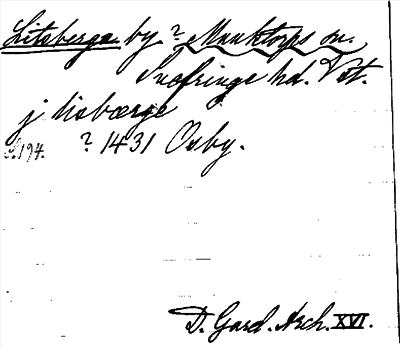 Litsberga by ? Munktorps sn.
Snefringe hd. Vst.
j lisbærge
S. 194. ? 1431 Osby.
D. Gard. Arch. XVI.